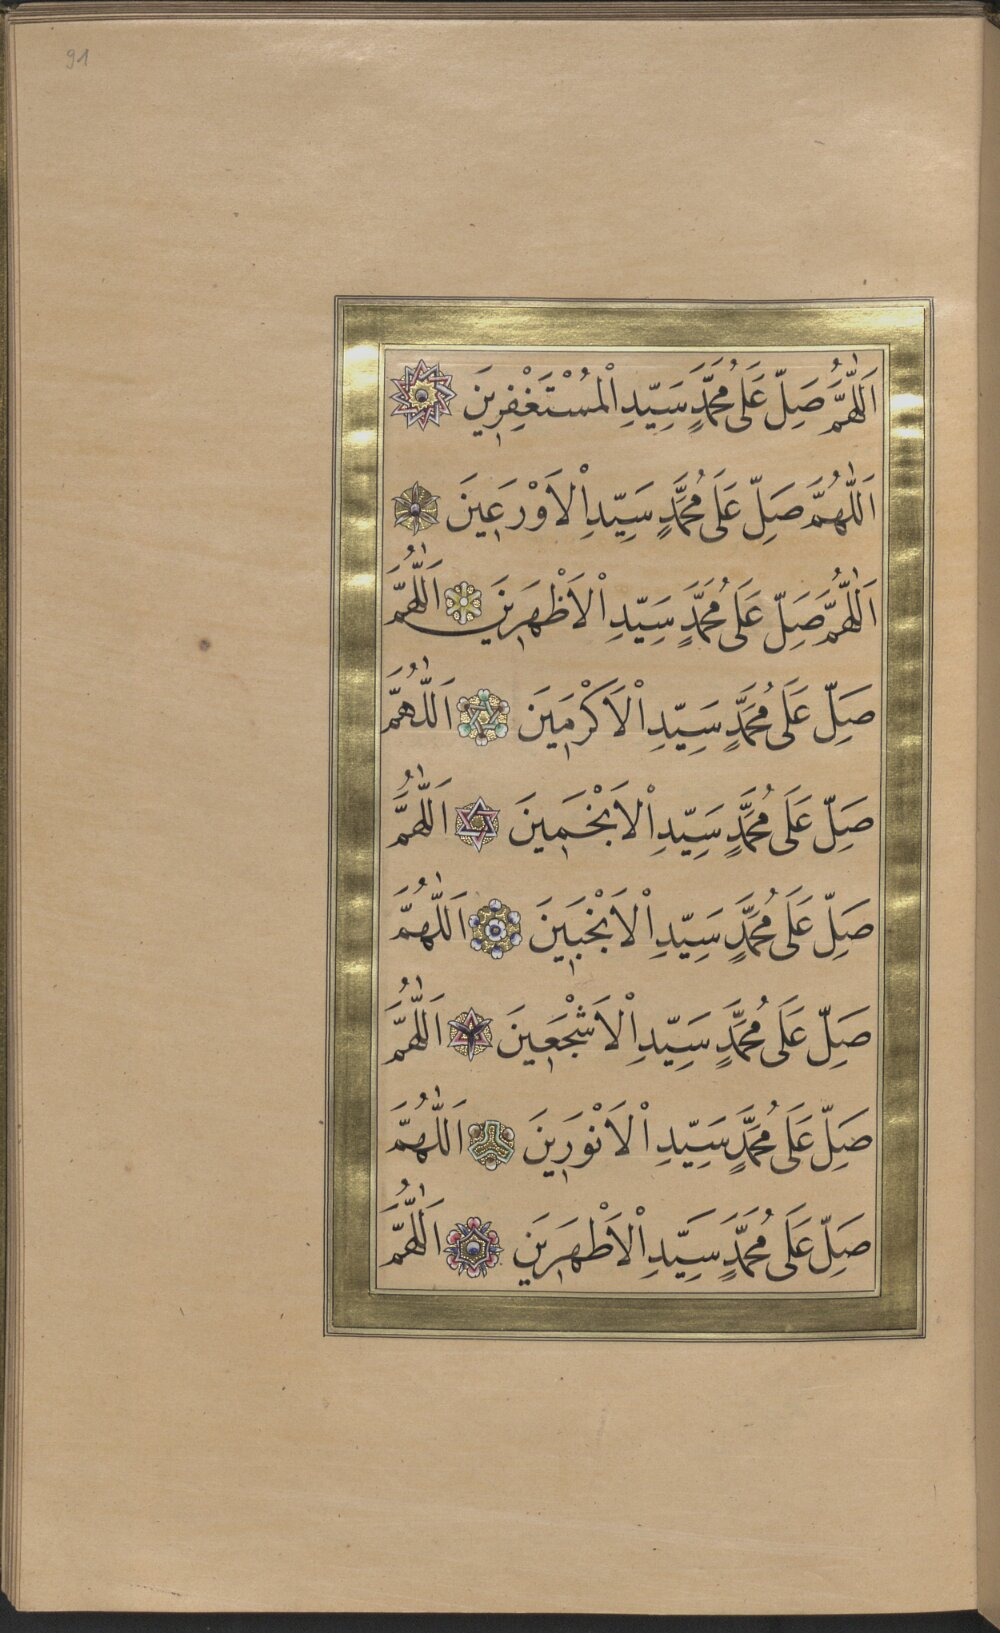 91
اَللّٰهُمَّ صَلِّ عَلَى مُحَمَّدٍ سَيِّدِ الْمُسْتَغْفِرِينَ
اَللّٰهُمَّ صَلِّ عَلَى مُحَمَّدٍ سَيِّدِ الْاَوْرَعِينَ
اَللّٰهُمَّ صَلِّ عَلَى مُحَمَّدٍ سَيِّدِ الْاَظْهَرِينَ اَللّٰهُمَّ
صَلِّ عَلَى مُحَمَّدٍ سَيِّدِ الْاَكْرَمِينَ اَللّٰهُمَّ
صَلِّ عَلَى مُحَمَّدٍ سَيِّدِ الْاَنْجَمِينَ اَللّٰهُمَّ
صَلِّ عَلَى مُحَمَّدٍ سَيِّدِ الْاَنْجَبِينَ اَللّٰهُمَّ
صَلِّ عَلَى مُحَمَّدٍ سَيِّدِ الْاَشْجَعِينَ اَللّٰهُمَّ
صَلِّ عَلَى مُحَمَّدٍ سَيِّدِ الْاَنْوَرِينَ اَللّٰهُمَّ
صَلِّ عَلَى مُحَمَّدٍ سَيِّدِ الْاَطْهَرِينَ اَللّٰهُمَّ